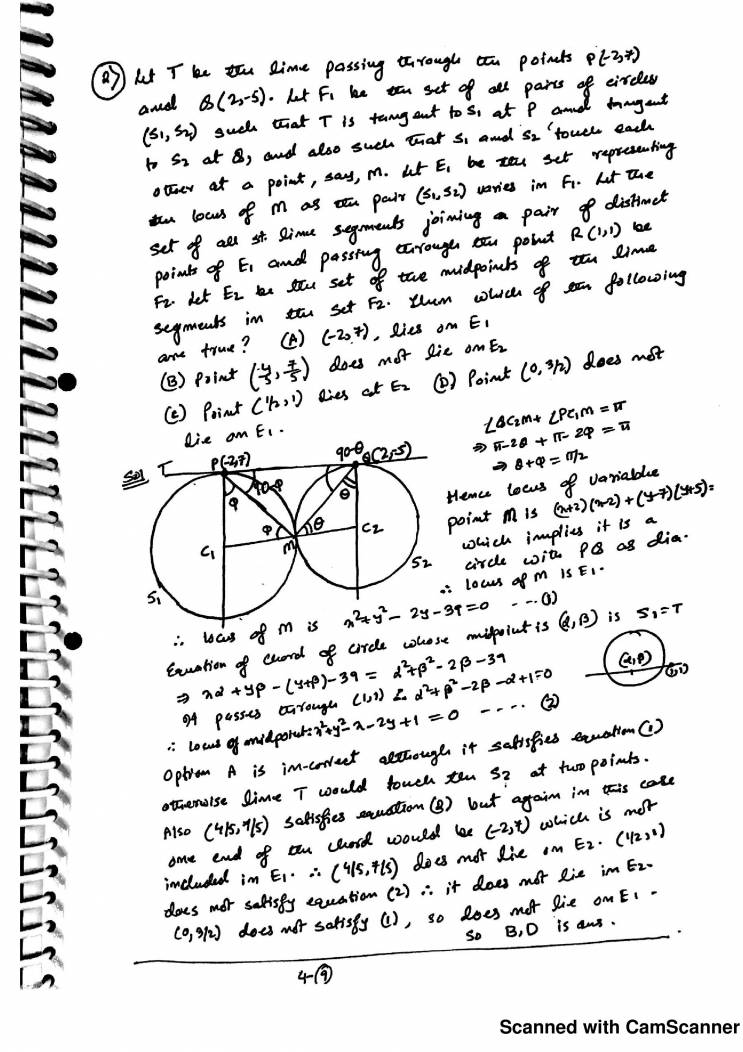 2) Let T be the line passing through the points P(-2,7)
and Q(2,-5). Let F1 be the set of all pairs of circles
(S1, S2) such that T is tangent to S1 at P and tangent
to S2 at Q, and also such that S1 and S2 touch each
other at a point, say, M. Let E1 be the set representing
the locus of M as the pair (S1, S2) varies in F1. Let the
set of all st. line segments joining a pair of distinct
points of E1 and passing through the point R(1,1) be
F2. Let E2 be the set of the midpoints of the line
segments in the set F2. Then which of the following
are true? (A) (-2,7), lies on E1
(B) Point (4/5, 7/5) does not lie on E2
(C) Point (1/2, 1) lies at E2 (D) Point (0, 3/2) does not
lie on E1.
∠QC2M + ∠PC1M = π
⇒ π-2θ + π-2φ = π
⇒ θ+φ = π/2
Sol T P(-2,7) 90-θ Q(2,-5)
φ 90-φ θ
φ θ
C1 M C2
S1 S2
Hence locus of variable
point M is (x+2)(x-2)+(y-7)(y+5)=
which implies it is a
circle with PQ as dia.
∴ locus of M is E1.
∴ locus of M is x²+y²-2y-39=0 ---(1)
Equation of chord of circle whose midpoint is (α,β) is S1=T
⇒ xα+yβ-(y+β)-39 = α²+β²-2β-39
It passes through (1,1) ∴ α²+β²-2β-α+1=0
(α,β) (1,1)
∴ locus of midpoint: x²+y²-x-2y+1=0 ---- (2)
Option A is in-correct although it satisfies equation (1)
otherwise line T would touch the S2 at two points.
Also (4/5, 7/5) satisfies equation (2) but again in this case
one end of the chord would be (-2,7) which is not
included in E1. ∴ (4/5, 7/5) does not lie on E2. (1/2, 1)
does not satisfy equation (2) ∴ it does not lie in E2.
(0, 3/2) does not satisfy (1), so does not lie on E1.
So B,D is ans.
4-(9)
Scanned with CamScanner